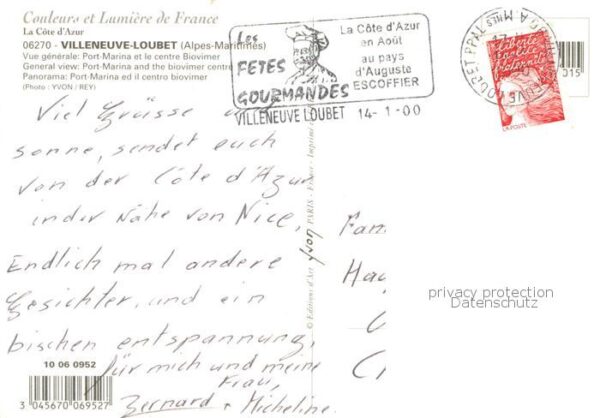 Couleurs et Lumière de France
La Côte d'Azur
06270 - VILLENEUVE-LOUBET (Alpes-Maritimes)
Vue générale: Port-Marina et le centre Biovimer
General view: Port-Marina and the biovimer centre
Panorama: Port-Marina ed il centro biovimer
(Photo : YVON / REY)
Les
FETES
GOURMANDES
La Côte d'Azur
en Août
au pays
d'Auguste
ESCOFFIER
VILLENEUVE LOUBET 14-1-00
liberté
égalité
fraternité
LA POSTE
315
Viel Grüsse
sonne, sendet euch
von der Côte d'Azur
in der Nähe von Nice,
Endlich mal andere
Gesichter, und ein
bischen entspannung,
für mich und meine
Frau,
Bernard + Micheline
Fam
Hag
privacy protection
Datenschutz
© Editions d'Art Yvon PARIS - France
10 06 0952
3 045670 069527